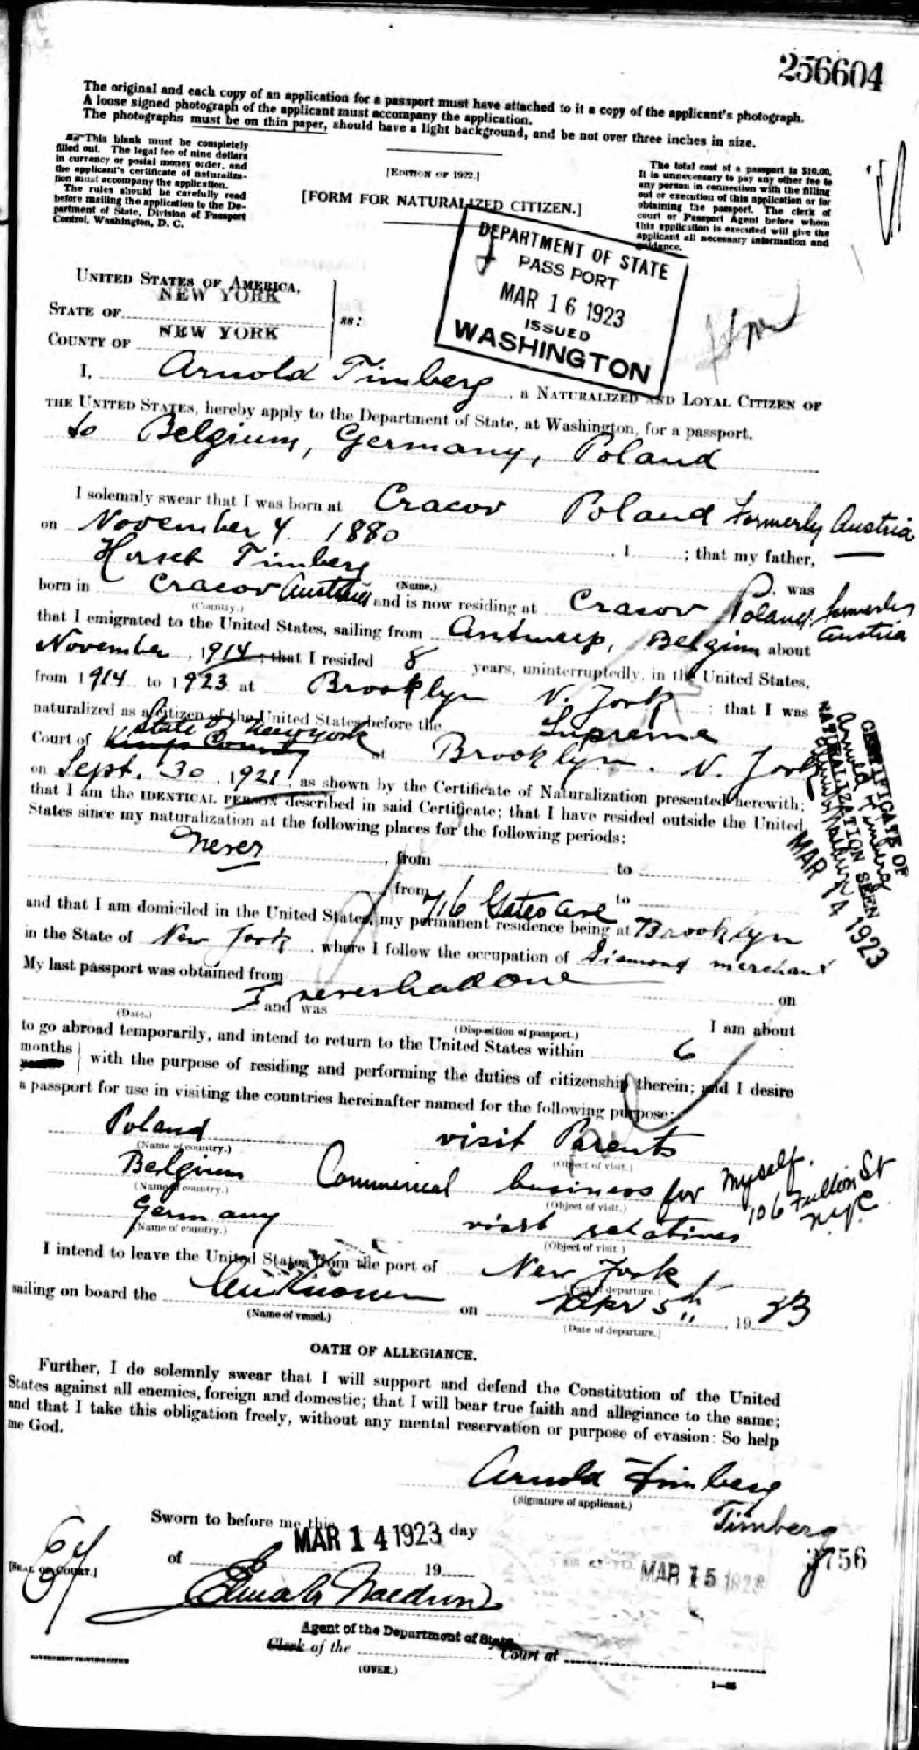 256604
The original and each copy of an application for a passport must have attached to it a copy of the applicant's photograph.
A loose signed photograph of the applicant must accompany the application.
The photographs must be on thin paper, should have a light background, and be not over three inches in size.
This blank must be completely
filled out. The legal fee of nine dollars
in currency or postal money order, and
the applicant's certificate of naturaliza-
tion must accompany the application.
The rules should be carefully read
before mailing the application to the De-
partment of State, Division of Passport
Control, Washington, D. C.
[EDITION OF 1922.]
[FORM FOR NATURALIZED CITIZEN.]
The total cost of a passport is $10.00.
It is unnecessary to pay any other fee to
any person in connection with the filling
out or execution of this application or for
obtaining the passport. The clerk of
court or Passport Agent before whom
this application is executed will give the
applicant all necessary information and
guidance.
DEPARTMENT OF STATE
PASSPORT
MAR 16 1923
ISSUED
WASHINGTON
UNITED STATES OF AMERICA,
STATE OF NEW YORK
ss:
COUNTY OF NEW YORK
I, Arnold Timberg, a NATURALIZED AND LOYAL CITIZEN OF
THE UNITED STATES, hereby apply to the Department of State, at Washington, for a passport.
to Belgium, Germany, Poland
I solemnly swear that I was born at Cracov Poland Formerly Austria
on November 4 1880, 1 ; that my father,
Hirsch Timberg
(Name.)
born in Cracov Austria and is now residing at Cracov Poland, formerly Austria
was
(Country.)
that I emigrated to the United States, sailing from Antwerp, Belgium about
November, 1914; that I resided 8 years, uninterruptedly, in the United States,
from 1914 to 1923 at Brooklyn N. York; that I was
naturalized as a citizen of the United States before the Supreme
State of New York
Court of Kings County at Brooklyn. N. York
on Sept. 30, 1921, as shown by the Certificate of Naturalization presented herewith;
that I am the IDENTICAL PERSON described in said Certificate; that I have resided outside the United
States since my naturalization at the following places for the following periods:
never, from to
, from to
716 Gates ave
and that I am domiciled in the United States, my permanent residence being at Brooklyn
in the State of New York, where I follow the occupation of Diamond merchant
My last passport was obtained from on
I never had one
and was
(Date.)
(Disposition of passport.)
I am about
to go abroad temporarily, and intend to return to the United States within 6
months
years
with the purpose of residing and performing the duties of citizenship therein; and I desire
a passport for use in visiting the countries hereinafter named for the following purpose:
Poland visit Parents
(Name of country.) (Object of visit.)
Belgium Commercial business for myself.
(Name of country.) (Object of visit.)
106 Fulton St
NYC
Germany visit relatives
(Name of country.) (Object of visit.)
I intend to leave the United States from the port of New York
(Port of departure.)
sailing on board the on Apr 5th, 1923
(Name of vessel.) (Date of departure.)
CERTIFICATE OF
NATURALIZATION SEEN
Arnold Timberg
MAR 14 1923
OATH OF ALLEGIANCE.
Further, I do solemnly swear that I will support and defend the Constitution of the United
States against all enemies, foreign and domestic; that I will bear true faith and allegiance to the same;
and that I take this obligation freely, without any mental reservation or purpose of evasion: So help
me God.
Arnold Timberg
(Signature of applicant.)
Timberg
Sworn to before me this day
MAR 14 1923
of 19
[SEAL OF COURT.]
MAR 15 1923
3756
Agent of the Department of State
Clerk of the Court at
(OVER.)
GOVERNMENT PRINTING OFFICE